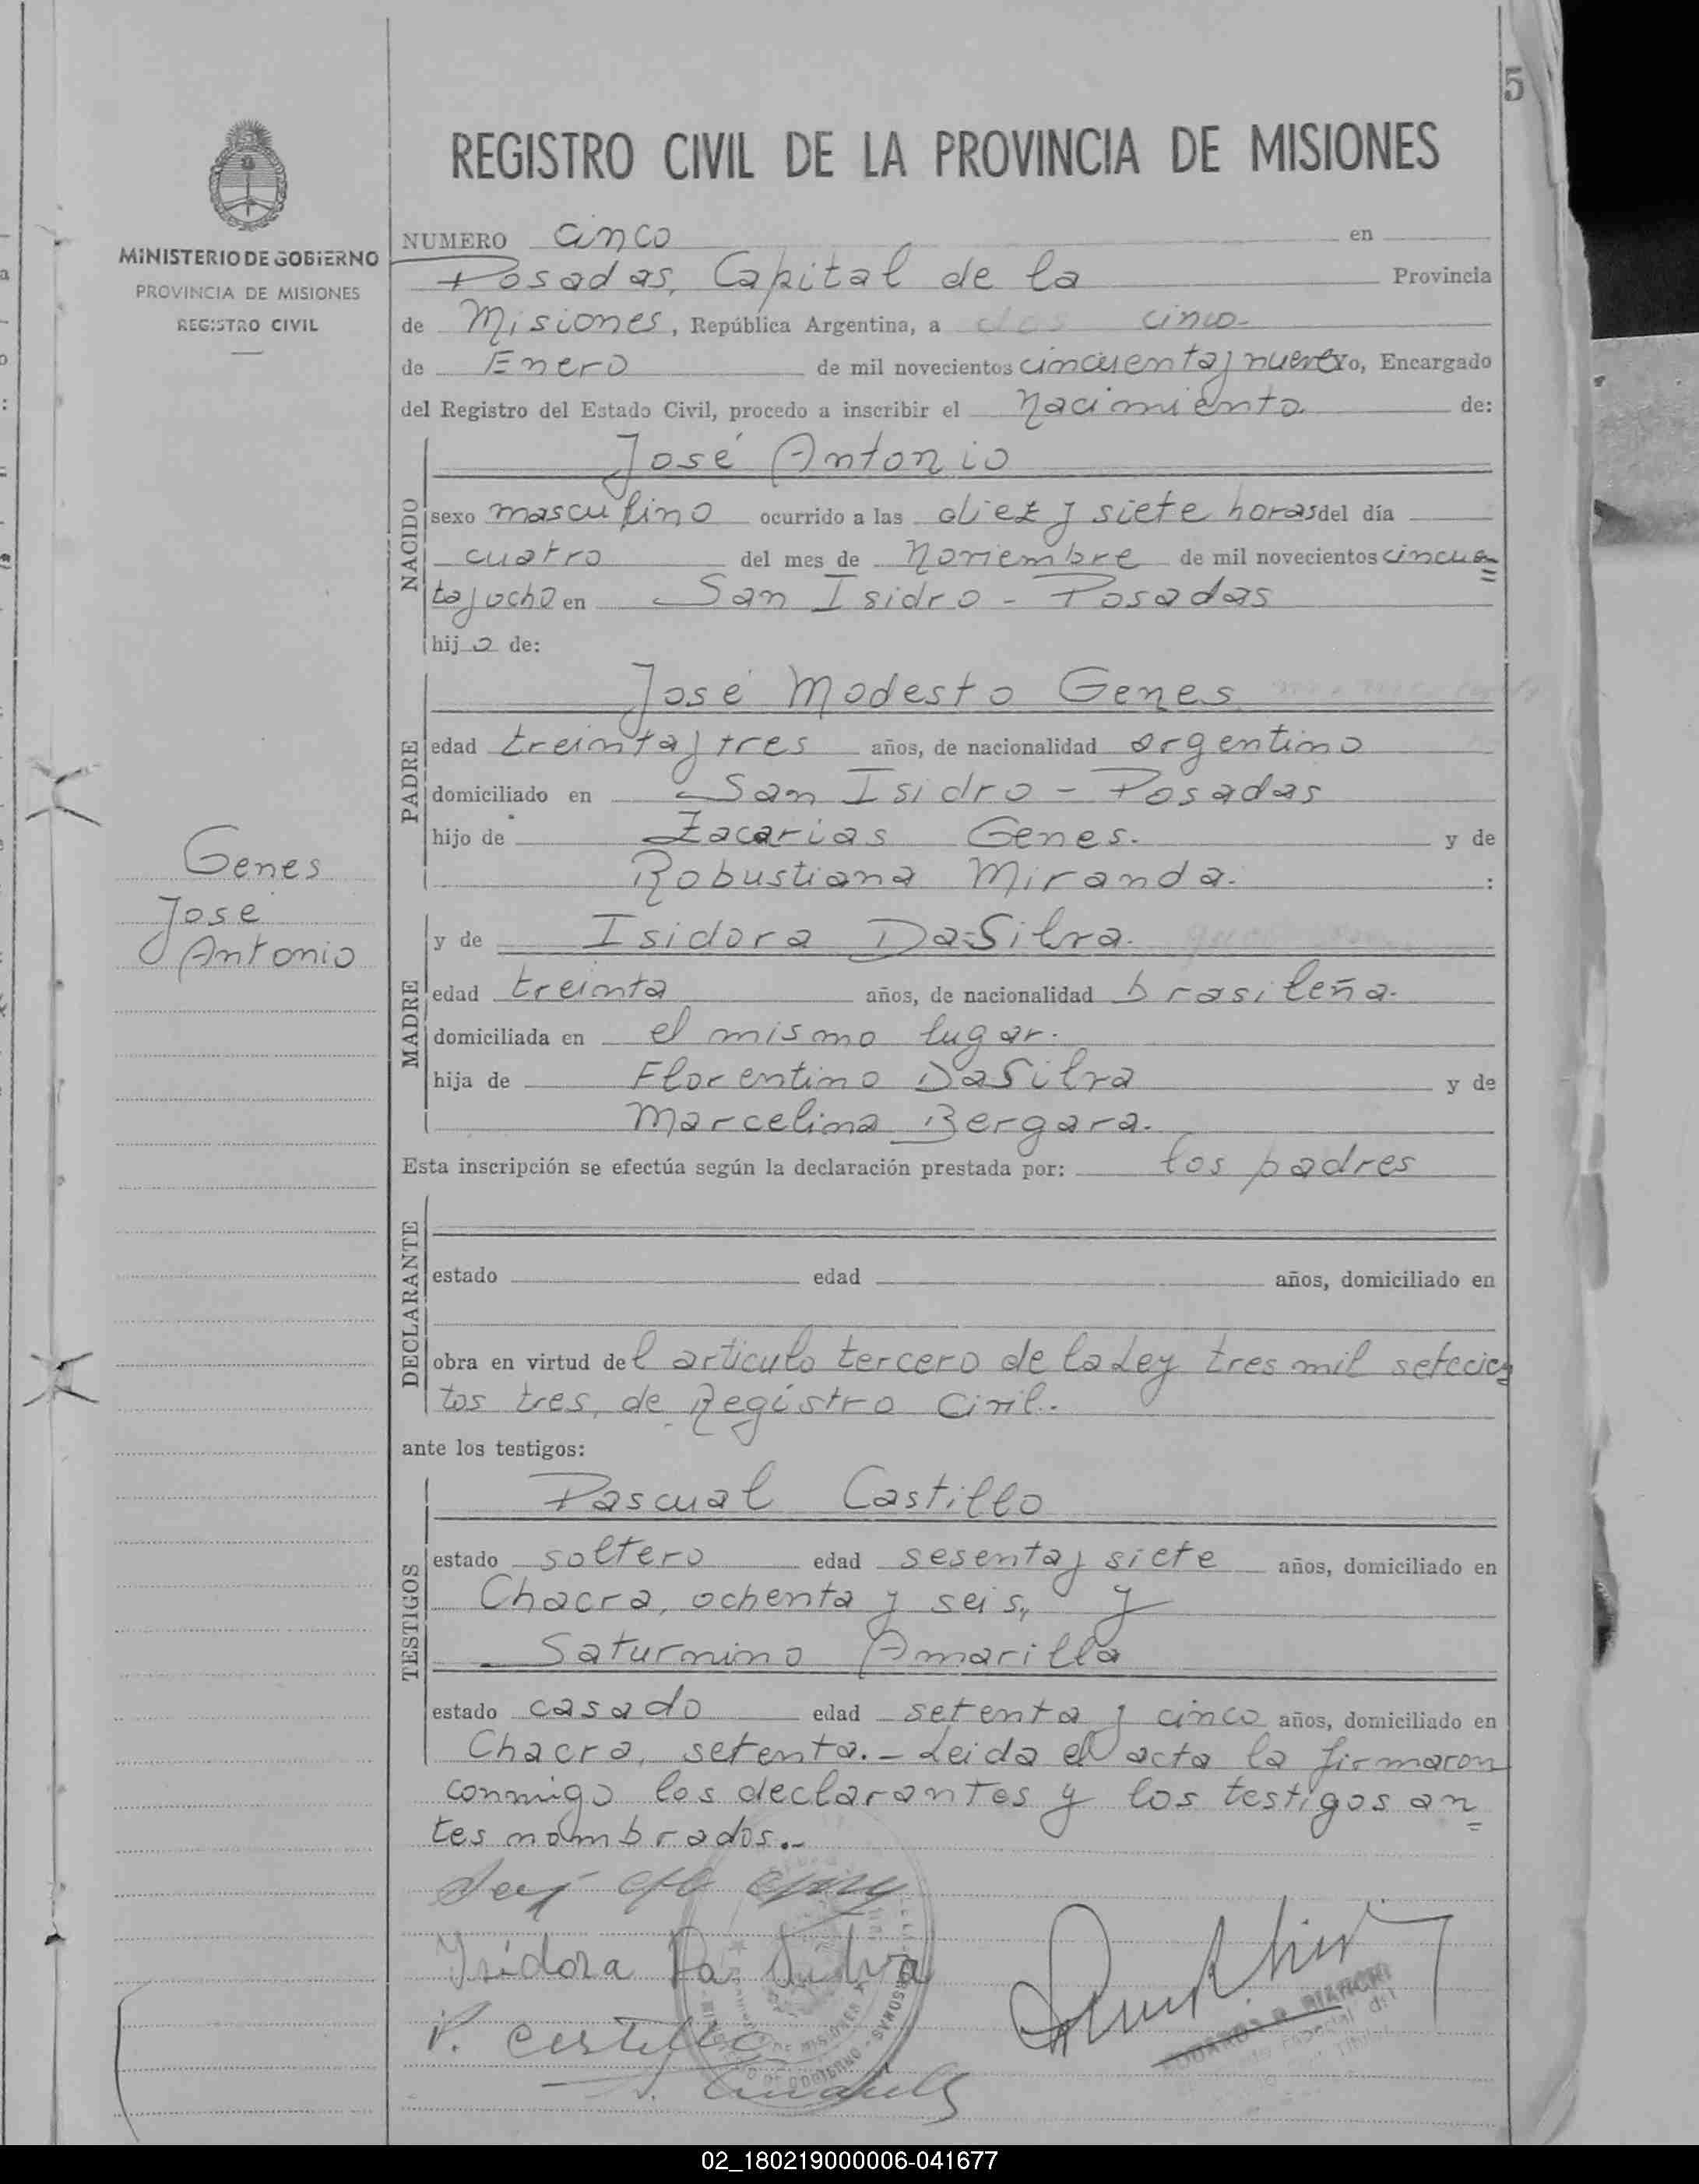 5
REGISTRO CIVIL DE LA PROVINCIA DE MISIONES
MINISTERIO DE GOBIERNO
PROVINCIA DE MISIONES
REGISTRO CIVIL
NUMERO cinco en
Posadas, Capital de la Provincia
de Misiones, República Argentina, a cinco
de Enero de mil novecientos cincuenta y nueve yo, Encargado
del Registro del Estado Civil, procedo a inscribir el Nacimiento de:
NACIDO
José Antonio
sexo masculino ocurrido a las diez y siete horas del día
cuatro del mes de Noviembre de mil novecientos cincuen
ta y ocho en San Isidro - Posadas
hijo de:
PADRE
José Modesto Genes
edad treinta y tres años, de nacionalidad argentino
domiciliado en San Isidro - Posadas
hijo de Zacarias Genes. y de
Robustiana Miranda. :
Genes
José
Antonio
MADRE
y de Isidora DaSilva.
edad treinta años, de nacionalidad brasileña.
domiciliada en el mismo lugar.
hija de Florentino DaSilva y de
Marcelina Bergara.
Esta inscripción se efectúa según la declaración prestada por: los padres
DECLARANTE
estado edad años, domiciliado en
obra en virtud del articulo tercero de la Ley tres mil setecien
tos tres, de Registro Civil.
ante los testigos:
TESTIGOS
Pascual Castillo
estado soltero edad sesenta y siete años, domiciliado en
Chacra, ochenta y seis, y
Saturnino Amarilla
estado casado edad setenta y cinco años, domiciliado en
Chacra, setenta. - Leida el acta la firmaron
conmigo los declarantes y los testigos an
tes nombrados.-
Isidora Da Silva
P. Castillo
02_180219000006-041677